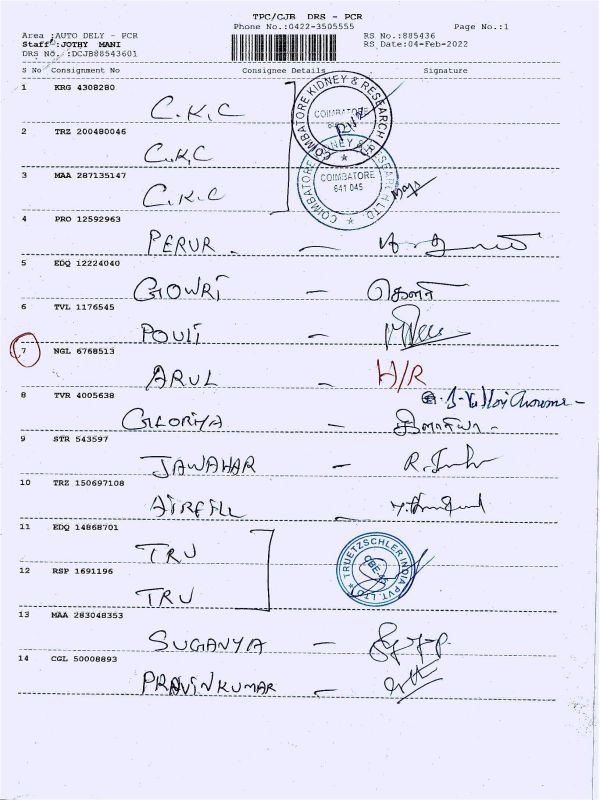 TPC/CJB DRS - PCR
Phone No.:0422-3505555 Page No.:1
Area :AUTO DELY - PCR RS No.:885436
Staff :JOTHY MANI RS Date:04-Feb-2022
DRS No. :DCJB88543601
S No Consignment No Consignee Details Signature
1 KRG 4308280
C.K.C
2 TRZ 200480046
C.K.C
3 MAA 287135147
C.K.C
COIMBATORE KIDNEY & RESEARCH
COIMBATORE
COIMBATORE
641 045
4 PRO 12592963
PERUR -
5 EDQ 12224040
GOWRI - கௌரி
6 TVL 1176545
POULI -
7 NGL 6768513
ARUL - H/R
8 TVR 4005638
GLORIYA -
9 STR 543597
JAWAHAR -
10 TRZ 150697108
AIREFILL -
11 EDQ 14868701
TRU
12 RSP 1691196
TRU
TRUETZSCHLER INDIA PVT. LTD
CBE
13 MAA 283048353
SUGANYA -
14 CGL 50008893
PRAVINKUMAR -